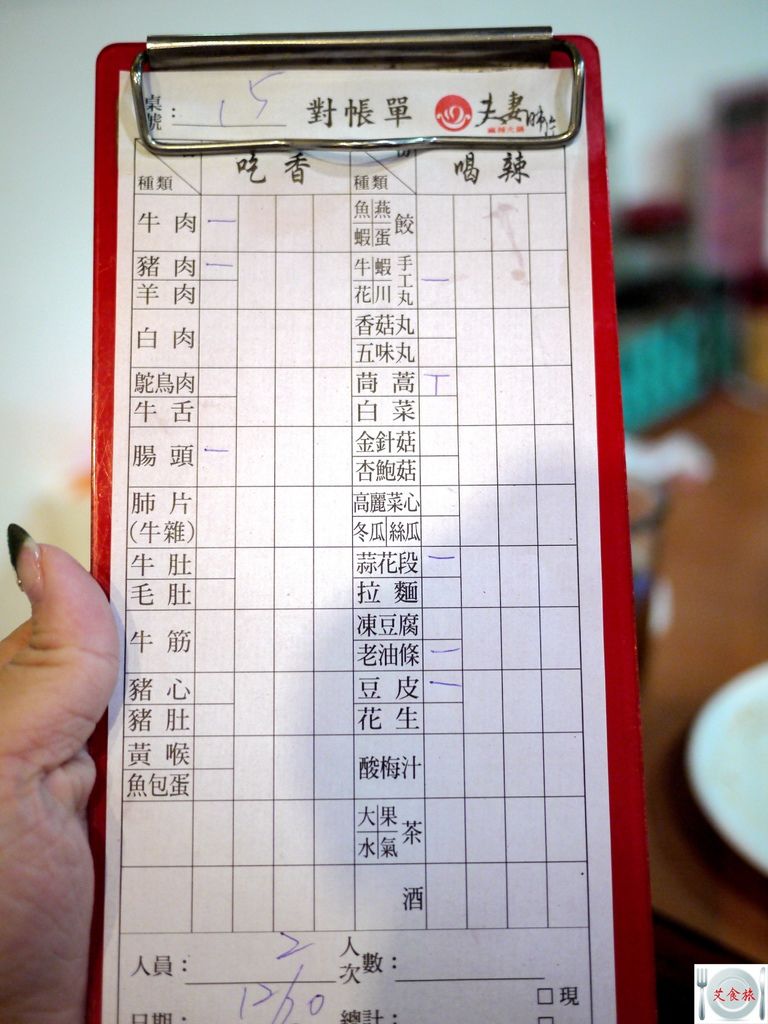 桌號： 15 對帳單 夫妻肺片
麻辣火鍋
種類 吃香 種類 喝辣
牛肉 一 魚燕蝦蛋餃
豬肉 一 牛蝦花川手工丸 一
羊肉
白肉 香菇丸
五味丸
鴕鳥肉 茼蒿 丅
牛舌 白菜
腸頭 一 金針菇
杏鮑菇
肺片 高麗菜心
(牛雜) 冬瓜 絲瓜
牛肚 蒜花段 一
毛肚 拉麵
牛筋 凍豆腐
老油條 一
豬心 豆皮 一
豬肚 花生
黃喉 酸梅汁
魚包蛋
大果水氣茶
酒
人員： 2 人次數：
□現
日期： 12/10 總計：
艾食旅